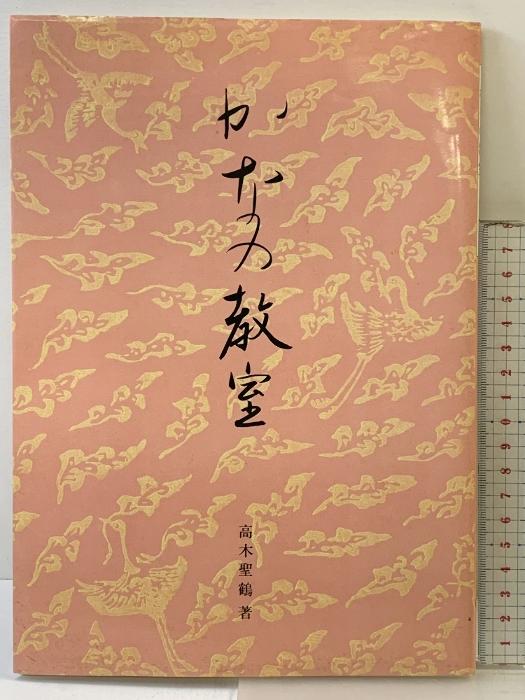 かなの教室
高木聖鶴 著